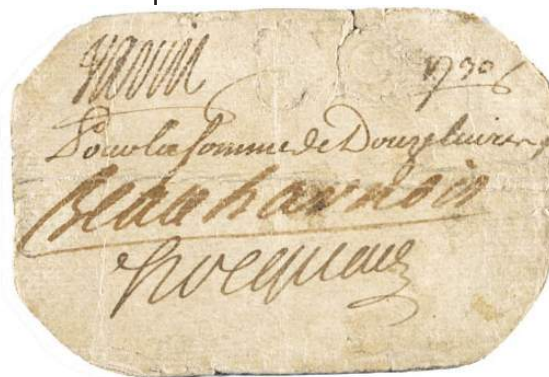 Varin 1730
Pour la somme de Douze livres
Beauharnois
hocquart